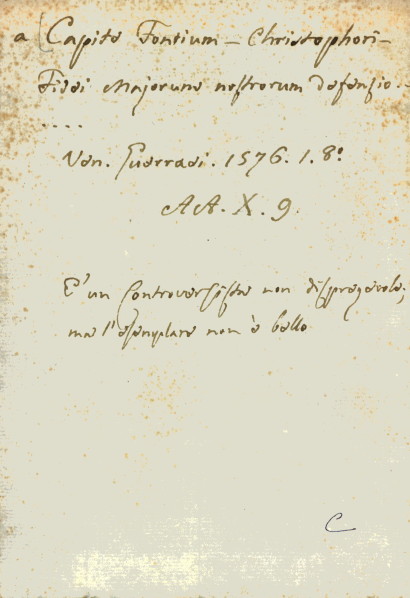 a Capite Fontium - Christophori -
Fidei Majorum nostrorum defensio. -
....
Ven. Guerraei. 1576. 1. 8.º
AA. X. 9.
E' un Controversista non dispregevole;
ma l'esemplare non è bello
C